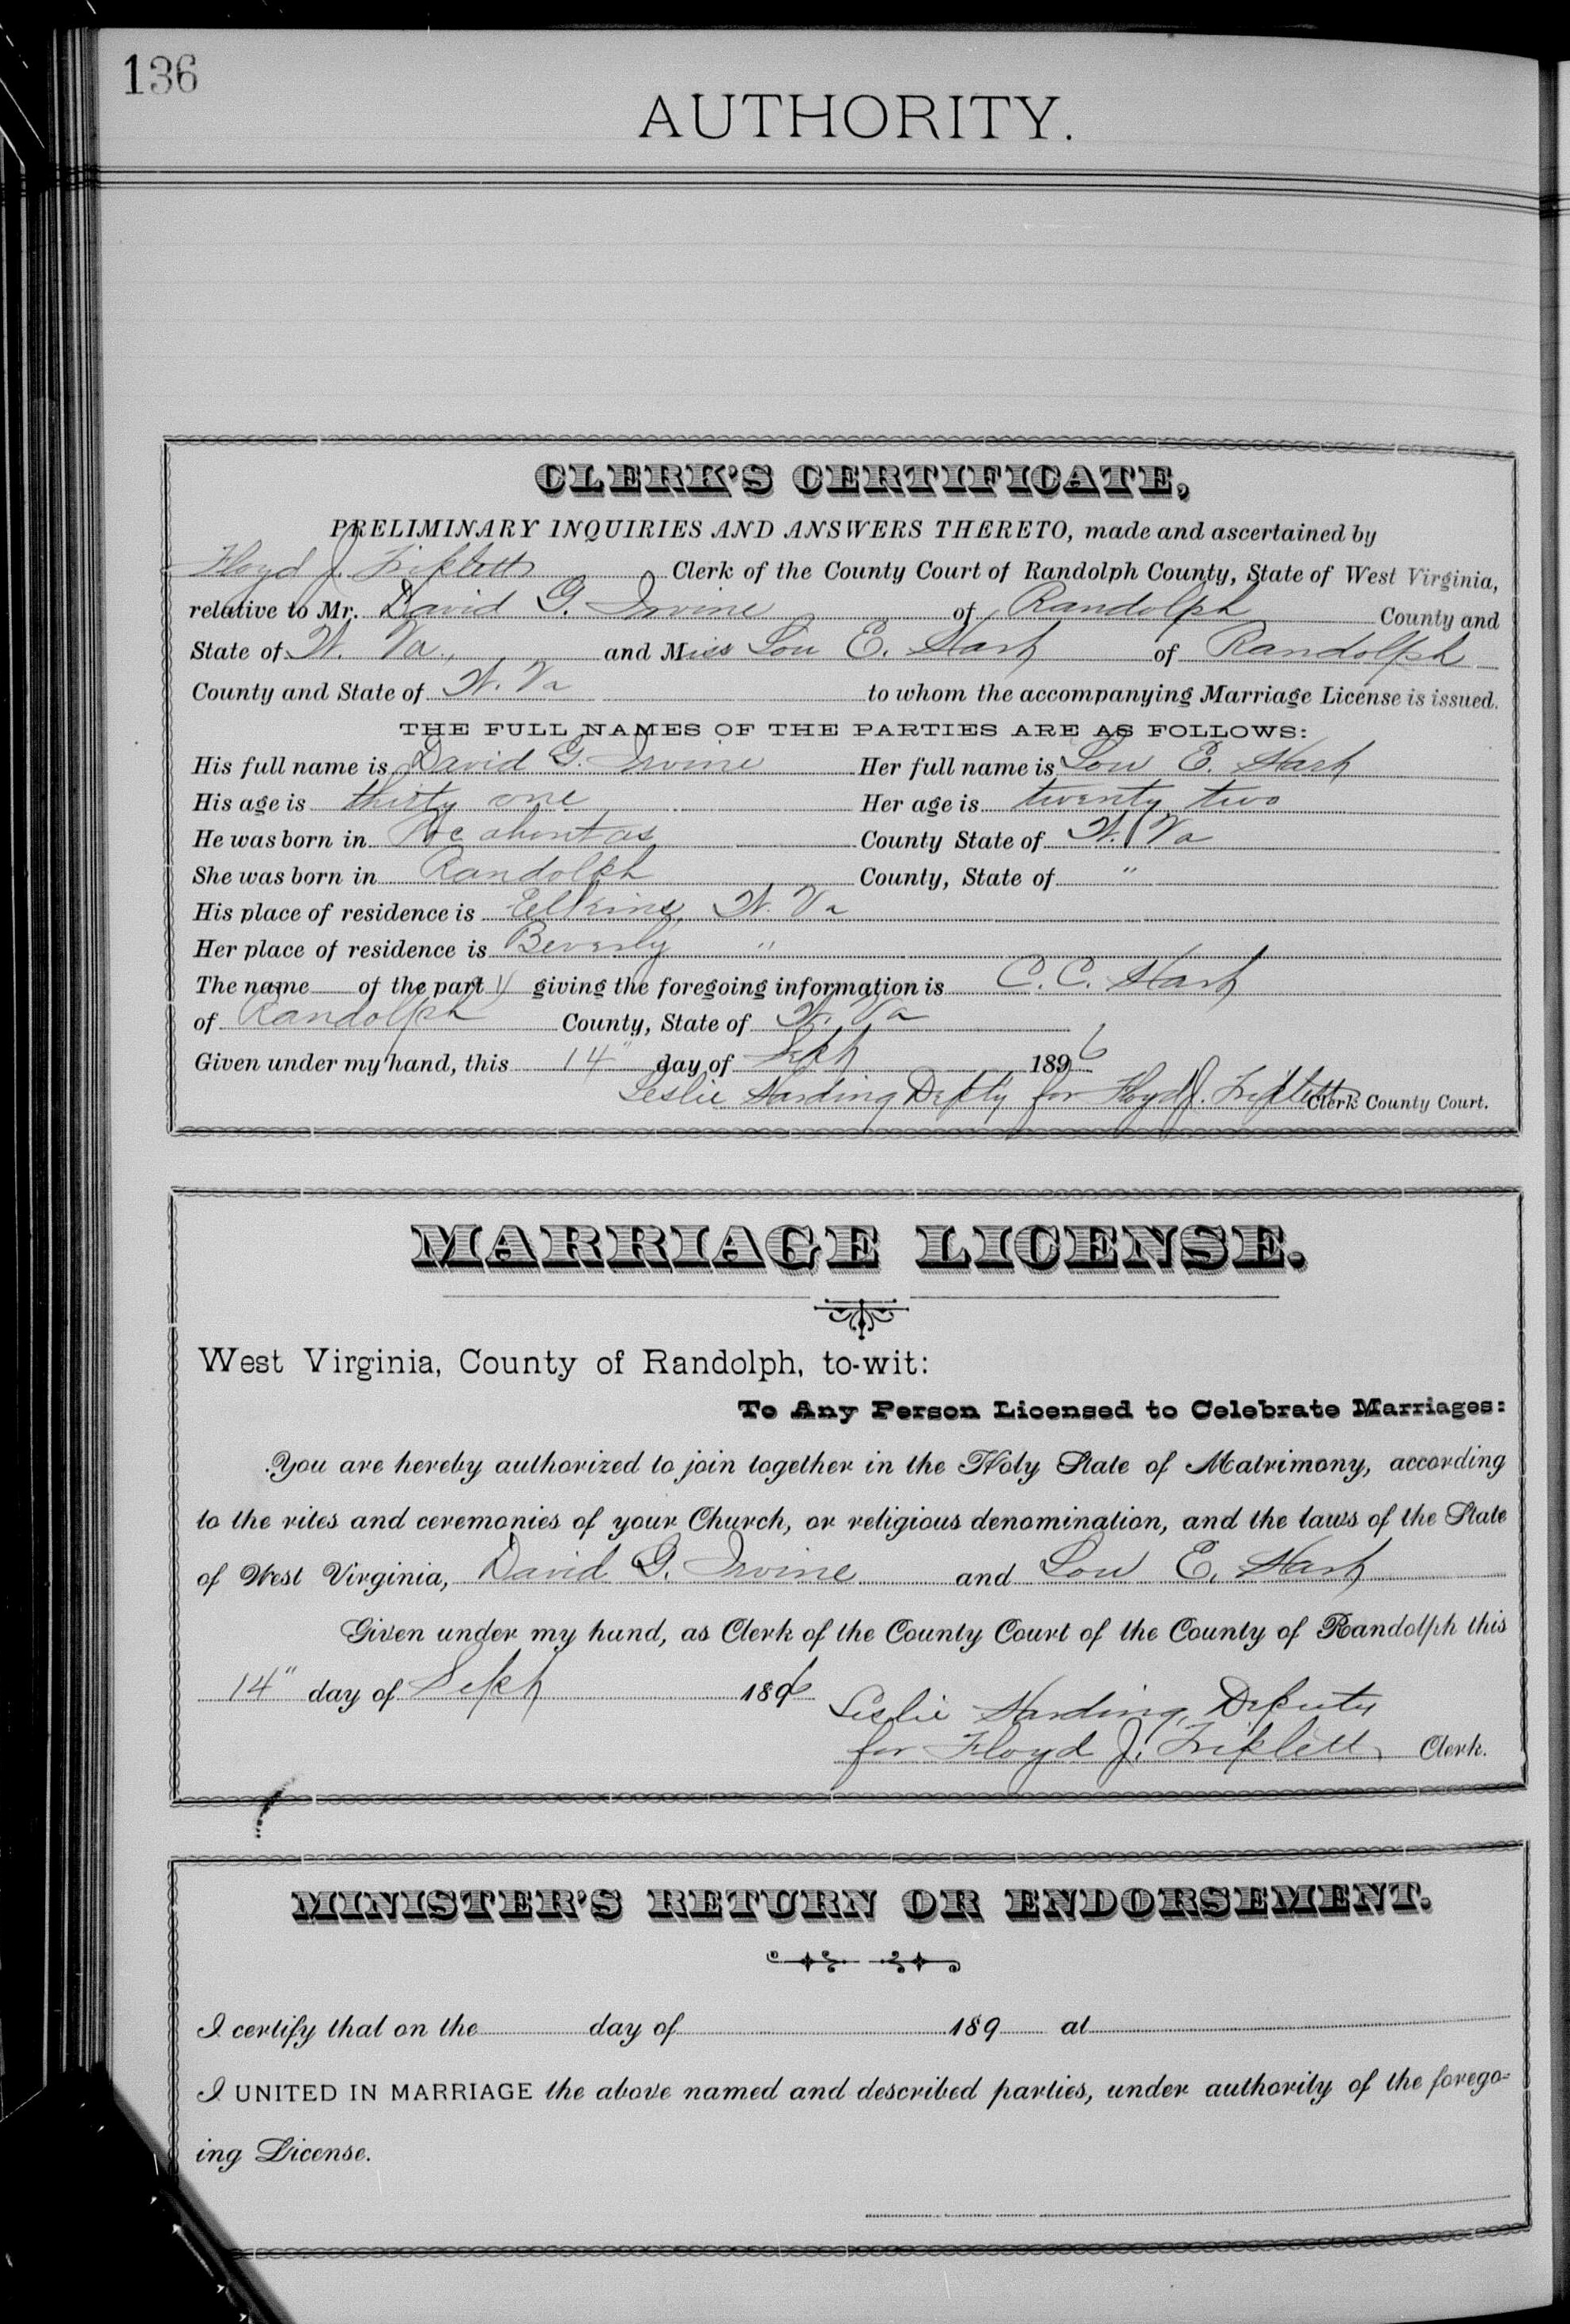 136
AUTHORITY.
CLERK'S CERTIFICATE,
PRELIMINARY INQUIRIES AND ANSWERS THERETO, made and ascertained by
Floyd J. Triplett Clerk of the County Court of Randolph County, State of West Virginia,
relative to Mr. David G. Irvine of Randolph County and
State of W. Va., and Miss Lou E. Hart of Randolph
County and State of W. Va to whom the accompanying Marriage License is issued.
THE FULL NAMES OF THE PARTIES ARE AS FOLLOWS:
His full name is David G. Irvine Her full name is Lou E. Hart
His age is thirty one Her age is twenty two
He was born in Pocahontas County State of W. Va
She was born in Randolph County, State of "
His place of residence is Elkins, W. Va
Her place of residence is Beverly "
The name of the party giving the foregoing information is C. C. Hart
of Randolph County, State of W. Va
Given under my hand, this 14" day of Sept 1896
Leslie Harding Depty for Floyd J. Triplett Clerk County Court.
MARRIAGE LICENSE.
West Virginia, County of Randolph, to-wit:
To Any Person Licensed to Celebrate Marriages:
You are hereby authorized to join together in the Holy State of Matrimony, according
to the rites and ceremonies of your Church, or religious denomination, and the laws of the State
of West Virginia, David G. Irvine and Lou E. Hart
Given under my hand, as Clerk of the County Court of the County of Randolph this
14" day of Sept 1896 Leslie Harding, Deputy
for Floyd J. Triplett Clerk.
MINISTER'S RETURN OR ENDORSEMENT.
I certify that on the day of 189 at
I UNITED IN MARRIAGE the above named and described parties, under authority of the forego-
ing License.